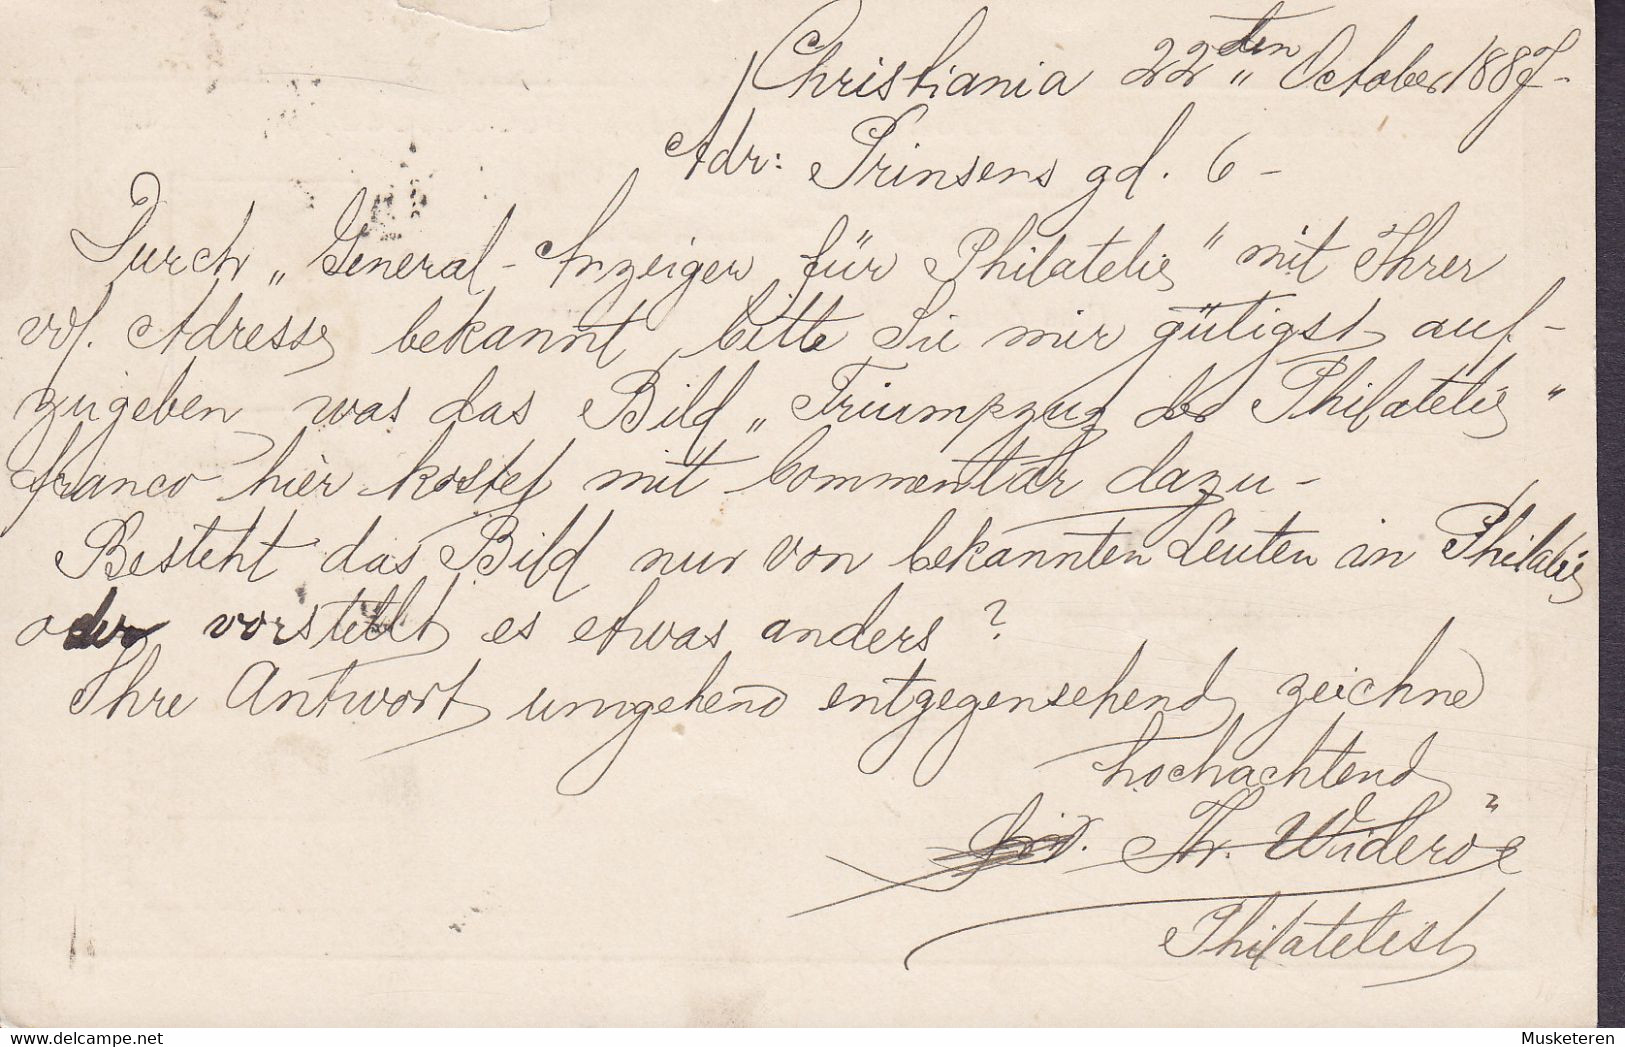 Christiania 22 „ den October 1887-
Adr: Prinsens gd. 6-
Durch „General-Anzeiger für Philatelie" mit Ihrer
Adresse bekannt, bitte Sie mir gütigst auf-
zugeben was das Bild „Triumpzug der Philatelie"
franco hier kostet mit Commentar dazu-
Besteht das Bild nur von bekannten Leuten in Philatelie
oder vorstellt es etwas anders?
Ihre Antwort umgehend entgegensehend zeichne
hochachtend
Th. Wideröe
Philatelist
Musketeren